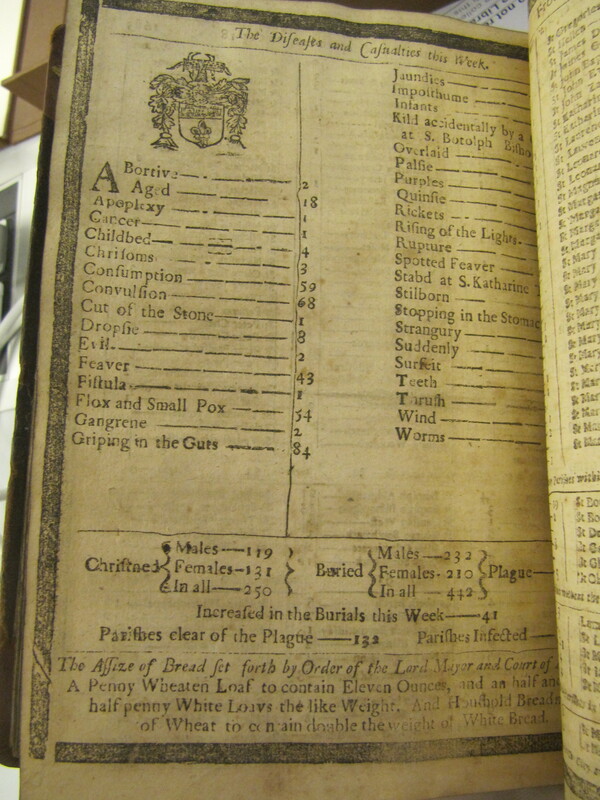 The Diſeaſes and Caſualties this Week.
ABortive 2
Aged 18
Apoplexy 1
Cancer 1
Childbed 4
Chriſoms 3
Conſumption 59
Convulſion 68
Cut of the Stone 1
Dropſie 8
Evil 2
Feaver 43
Fiſtula 1
Flox and Small Pox 54
Gangrene 2
Griping in the Guts 84
Jaundies
Impoſthume
Infants
Kild accidentally by a
at S. Botolph Biſho
Overlaid
Palſie
Purples
Quinſie
Rickets
Riſing of the Lights
Rupture
Spotted Feaver
Stabd at S. Katharine
Stilborn
Stopping in the Stomac
Strangury
Suddenly
Surfeit
Teeth
Thruſh
Wind
Worms
Chriſtned Males 119 Females 131 In all 250
Buried Males 232 Females 210 In all 442
Plague
Increaſed in the Burials this Week 41
Pariſhes clear of the Plague 132 Pariſhes Infected
The Aſſize of Bread ſet forth by Order of the Lord Mayor and Court of
A Penny Wheaten Loaf to contain Eleven Ounces, and an half and
half penny White Loavs the like Weight. And Houſhold Bread
of Wheat to contain double the weight of White Bread.
St Mary
St Mary
St Mary
St Mary
St Mary